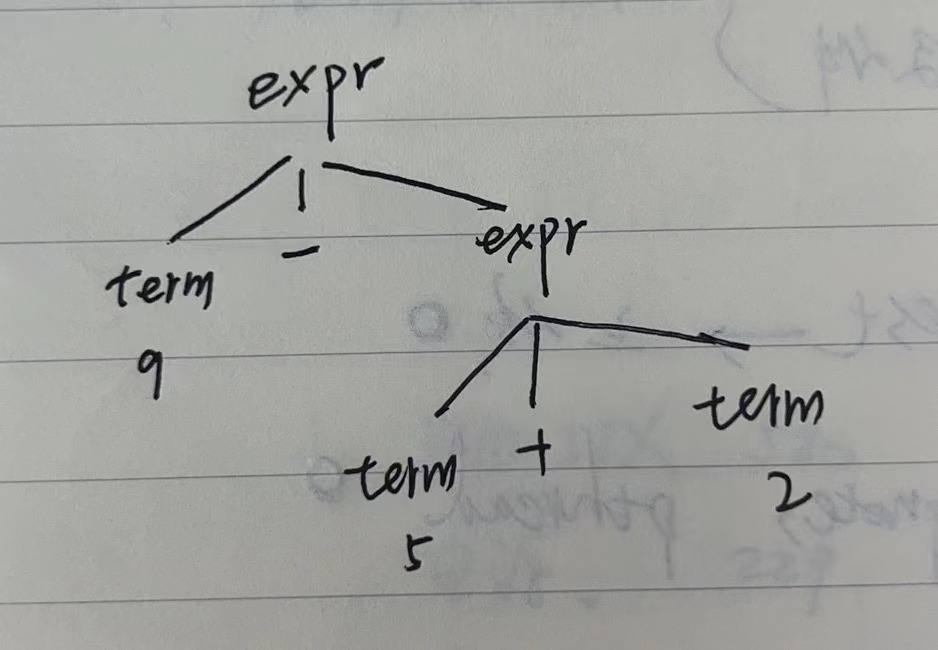 expr
term - expr
9
term + term
5 2